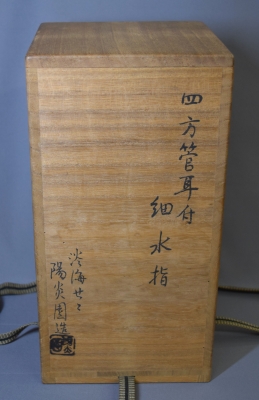 四方管耳付
細水指
淡海せゝ
陽炎園造